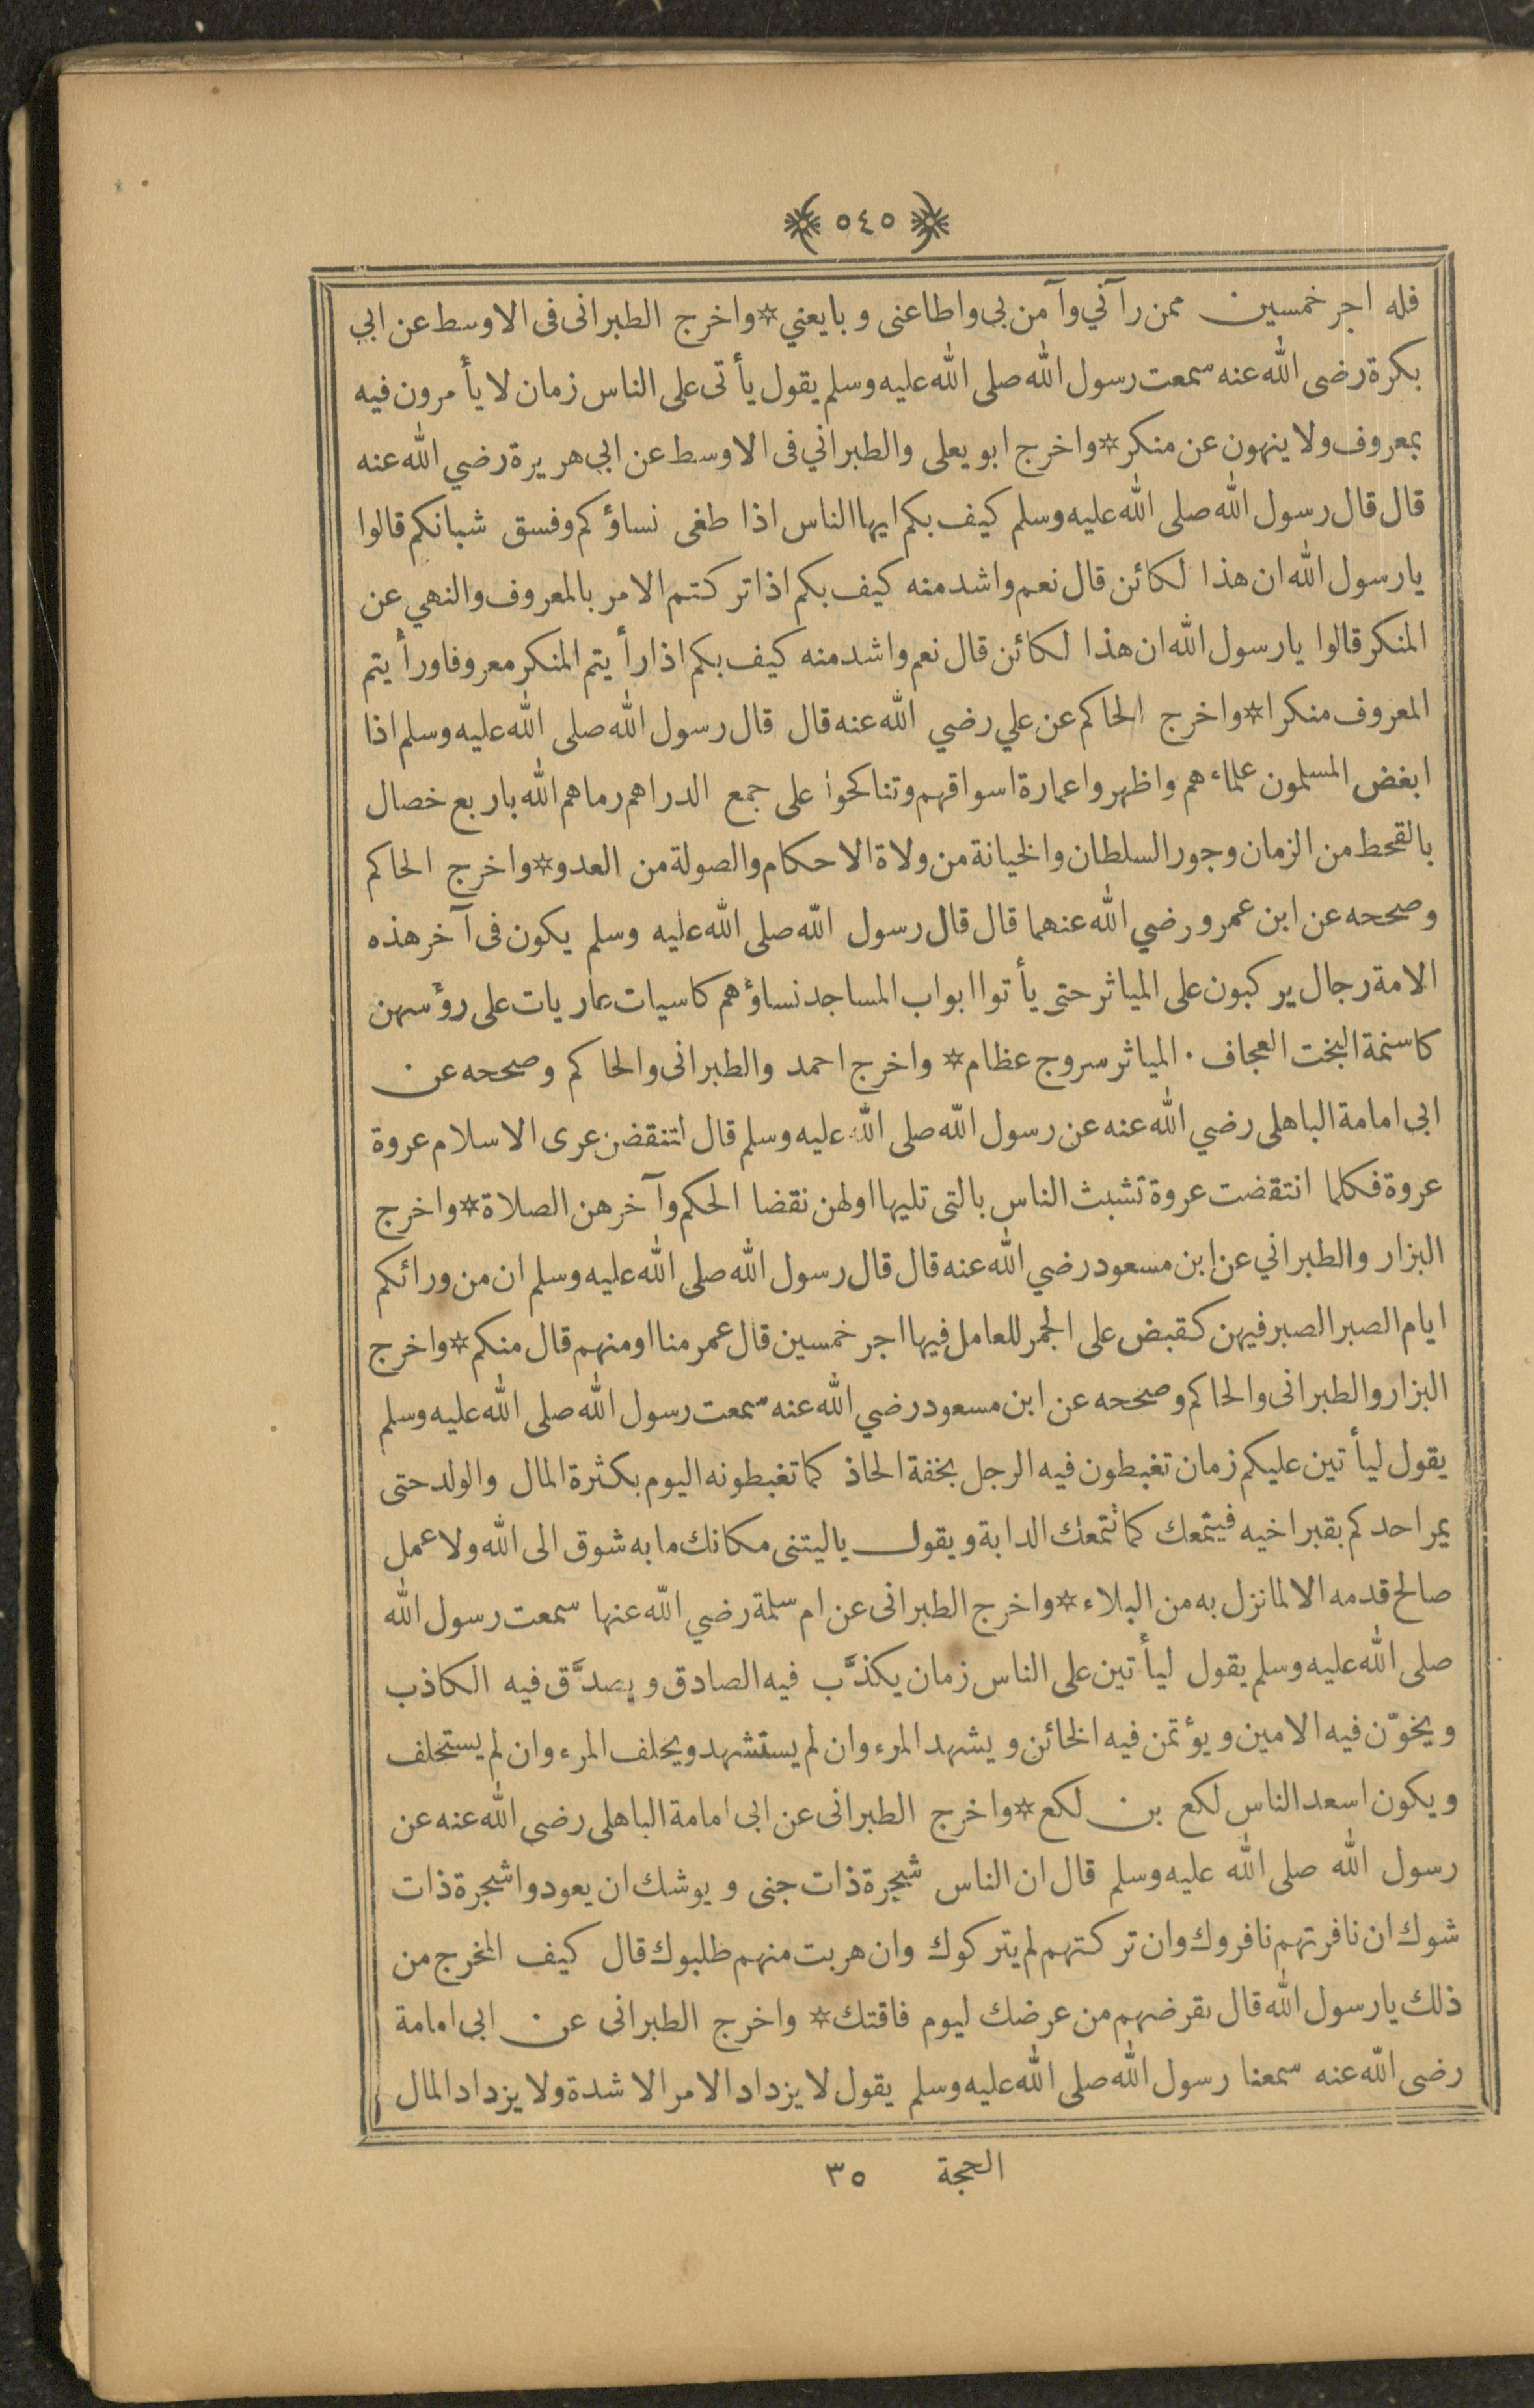 ﴿ ٥٤٥ ﴾
فله اجر خمسين ممن رآني وآمن بي واطاعنى وبايعني* واخرج الطبرانى فى الاوسط عن ابي
بكرة رضى الله عنه سمعت رسول الله صلى الله عليه وسلم يقول يأتى على الناس زمان لا يأمرون فيه
بمعروف ولا ينهون عن منكر* واخرج ابو يعلى والطبراني فى الاوسط عن ابي هريرة رضي الله عنه
قال قال رسول الله صلى الله عليه وسلم كيف بكم ايها الناس اذا طغى نساؤكم وفسق شبانكم قالوا
يا رسول الله ان هذا لكائن قال نعم واشد منه كيف بكم اذا تركتم الامر بالمعروف والنهي عن
المنكر قالوا يا رسول الله ان هذا لكائن قال نعم واشد منه كيف بكم اذا رأيتم المنكر معروفا ورأيتم
المعروف منكرا* واخرج الحاكم عن علي رضي الله عنه قال قال رسول الله صلى الله عليه وسلم اذا
ابغض المسلمون علماءهم واظهروا عمارة اسواقهم وتناكحوا على جمع الدراهم رماهم الله باربع خصال
بالقحط من الزمان وجور السلطان والخيانة من ولاة الاحكام والصولة من العدو* واخرج الحاكم
وصححه عن ابن عمرو رضي الله عنهما قال قال رسول الله صلى الله عليه وسلم يكون فى آخر هذه
الامة رجال يركبون على المياثر حتى يأتوا ابواب المساجد نساؤهم كاسيات عاريات على رؤسهن
كاسنمة البخت العجاف . المياثر سروج عظام* واخرج احمد والطبرانى والحاكم وصححه عن
ابى امامة الباهلى رضي الله عنه عن رسول الله صلى الله عليه وسلم قال لتنقضن عرى الاسلام عروة
عروة فكلما انتقضت عروة تشبث الناس بالتى تليها اولهن نقضا الحكم وآخرهن الصلاة* واخرج
البزار والطبراني عن ابن مسعود رضي الله عنه قال قال رسول الله صلى الله عليه وسلم ان من ورائكم
ايام الصبر الصبر فيهن كقبض على الجمر للعامل فيها اجر خمسين قال عمر منا او منهم قال منكم* واخرج
البزار والطبرانى والحاكم وصححه عن ابن مسعود رضي الله عنه سمعت رسول الله صلى الله عليه وسلم
يقول ليأتين عليكم زمان تغبطون فيه الرجل بخفة الحاذ كما تغبطونه اليوم بكثرة المال والولد حتى
يمر احدكم بقبر اخيه فيتمعك كما تتمعك الدابة ويقول يا ليتنى مكانك ما به شوق الى الله ولا عمل
صالح قدمه الا لما نزل به من البلاء* واخرج الطبرانى عن ام سلمة رضي الله عنها سمعت رسول الله
صلى الله عليه وسلم يقول ليأتين على الناس زمان يكذَّب فيه الصادق ويصدَّق فيه الكاذب
ويخوّن فيه الامين ويؤتمن فيه الخائن ويشهد المرء وان لم يستشهد ويحلف المرء وان لم يستحلف
ويكون اسعد الناس لكع بن لكع* واخرج الطبرانى عن ابى امامة الباهلى رضى الله عنه عن
رسول الله صلى الله عليه وسلم قال ان الناس شجرة ذات جنى ويوشك ان يعودوا شجرة ذات
شوك ان نافرتهم نافروك وان تركتهم لم يتركوك وان هربت منهم طلبوك قال كيف المخرج من
ذلك يا رسول الله قال تقرضهم من عرضك ليوم فاقتك* واخرج الطبرانى عن ابى امامة
رضى الله عنه سمعنا رسول الله صلى الله عليه وسلم يقول لا يزداد الامر الا شدة ولا يزداد المال
الحجة ٣٥